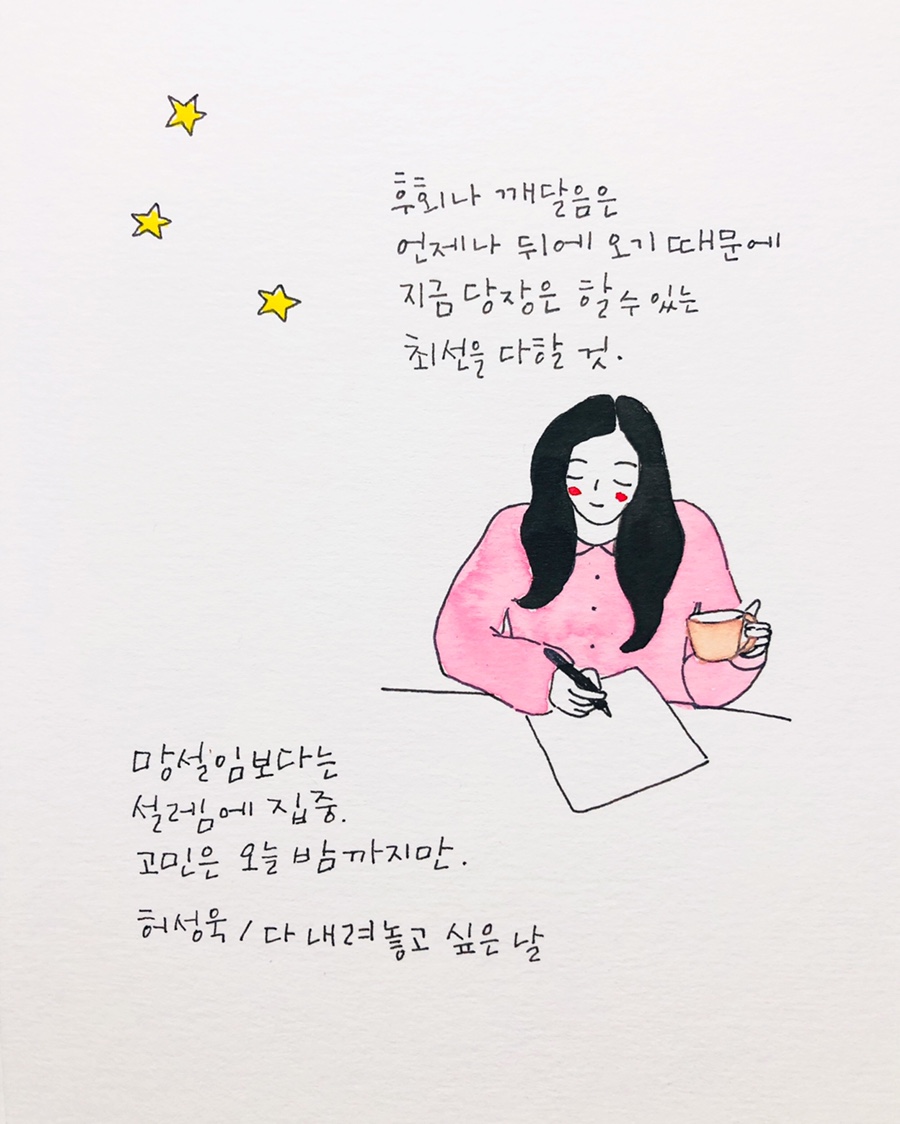 후회나 깨달음은
언제나 뒤에 오기 때문에
지금 당장은 할 수 있는
최선을 다할 것.
망설임보다는
설레임에 집중.
고민은 오늘 밤까지만.
허성욱 / 다 내려놓고 싶은 날